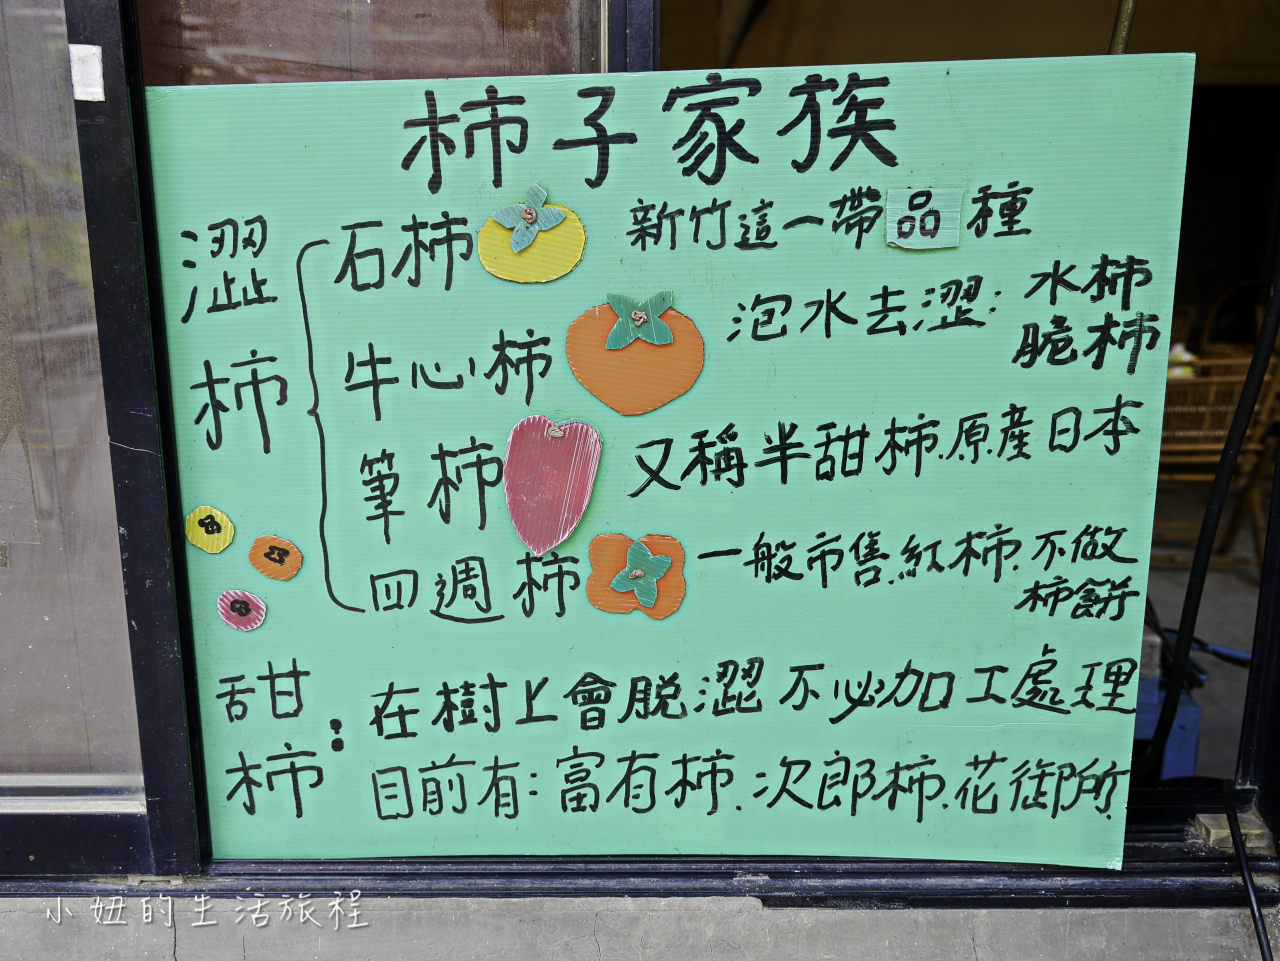 柿子家族
澀柿
石柿 新竹這一帶品種
牛心柿 泡水去澀:水柿
脆柿
筆柿 又稱半甜柿.原產日本
四週柿 一般市售.紅柿.不做
柿餅
甜柿:在樹上會脫澀不必加工處理
目前有:富有柿.次郎柿.花御所.
小妞的生活旅程